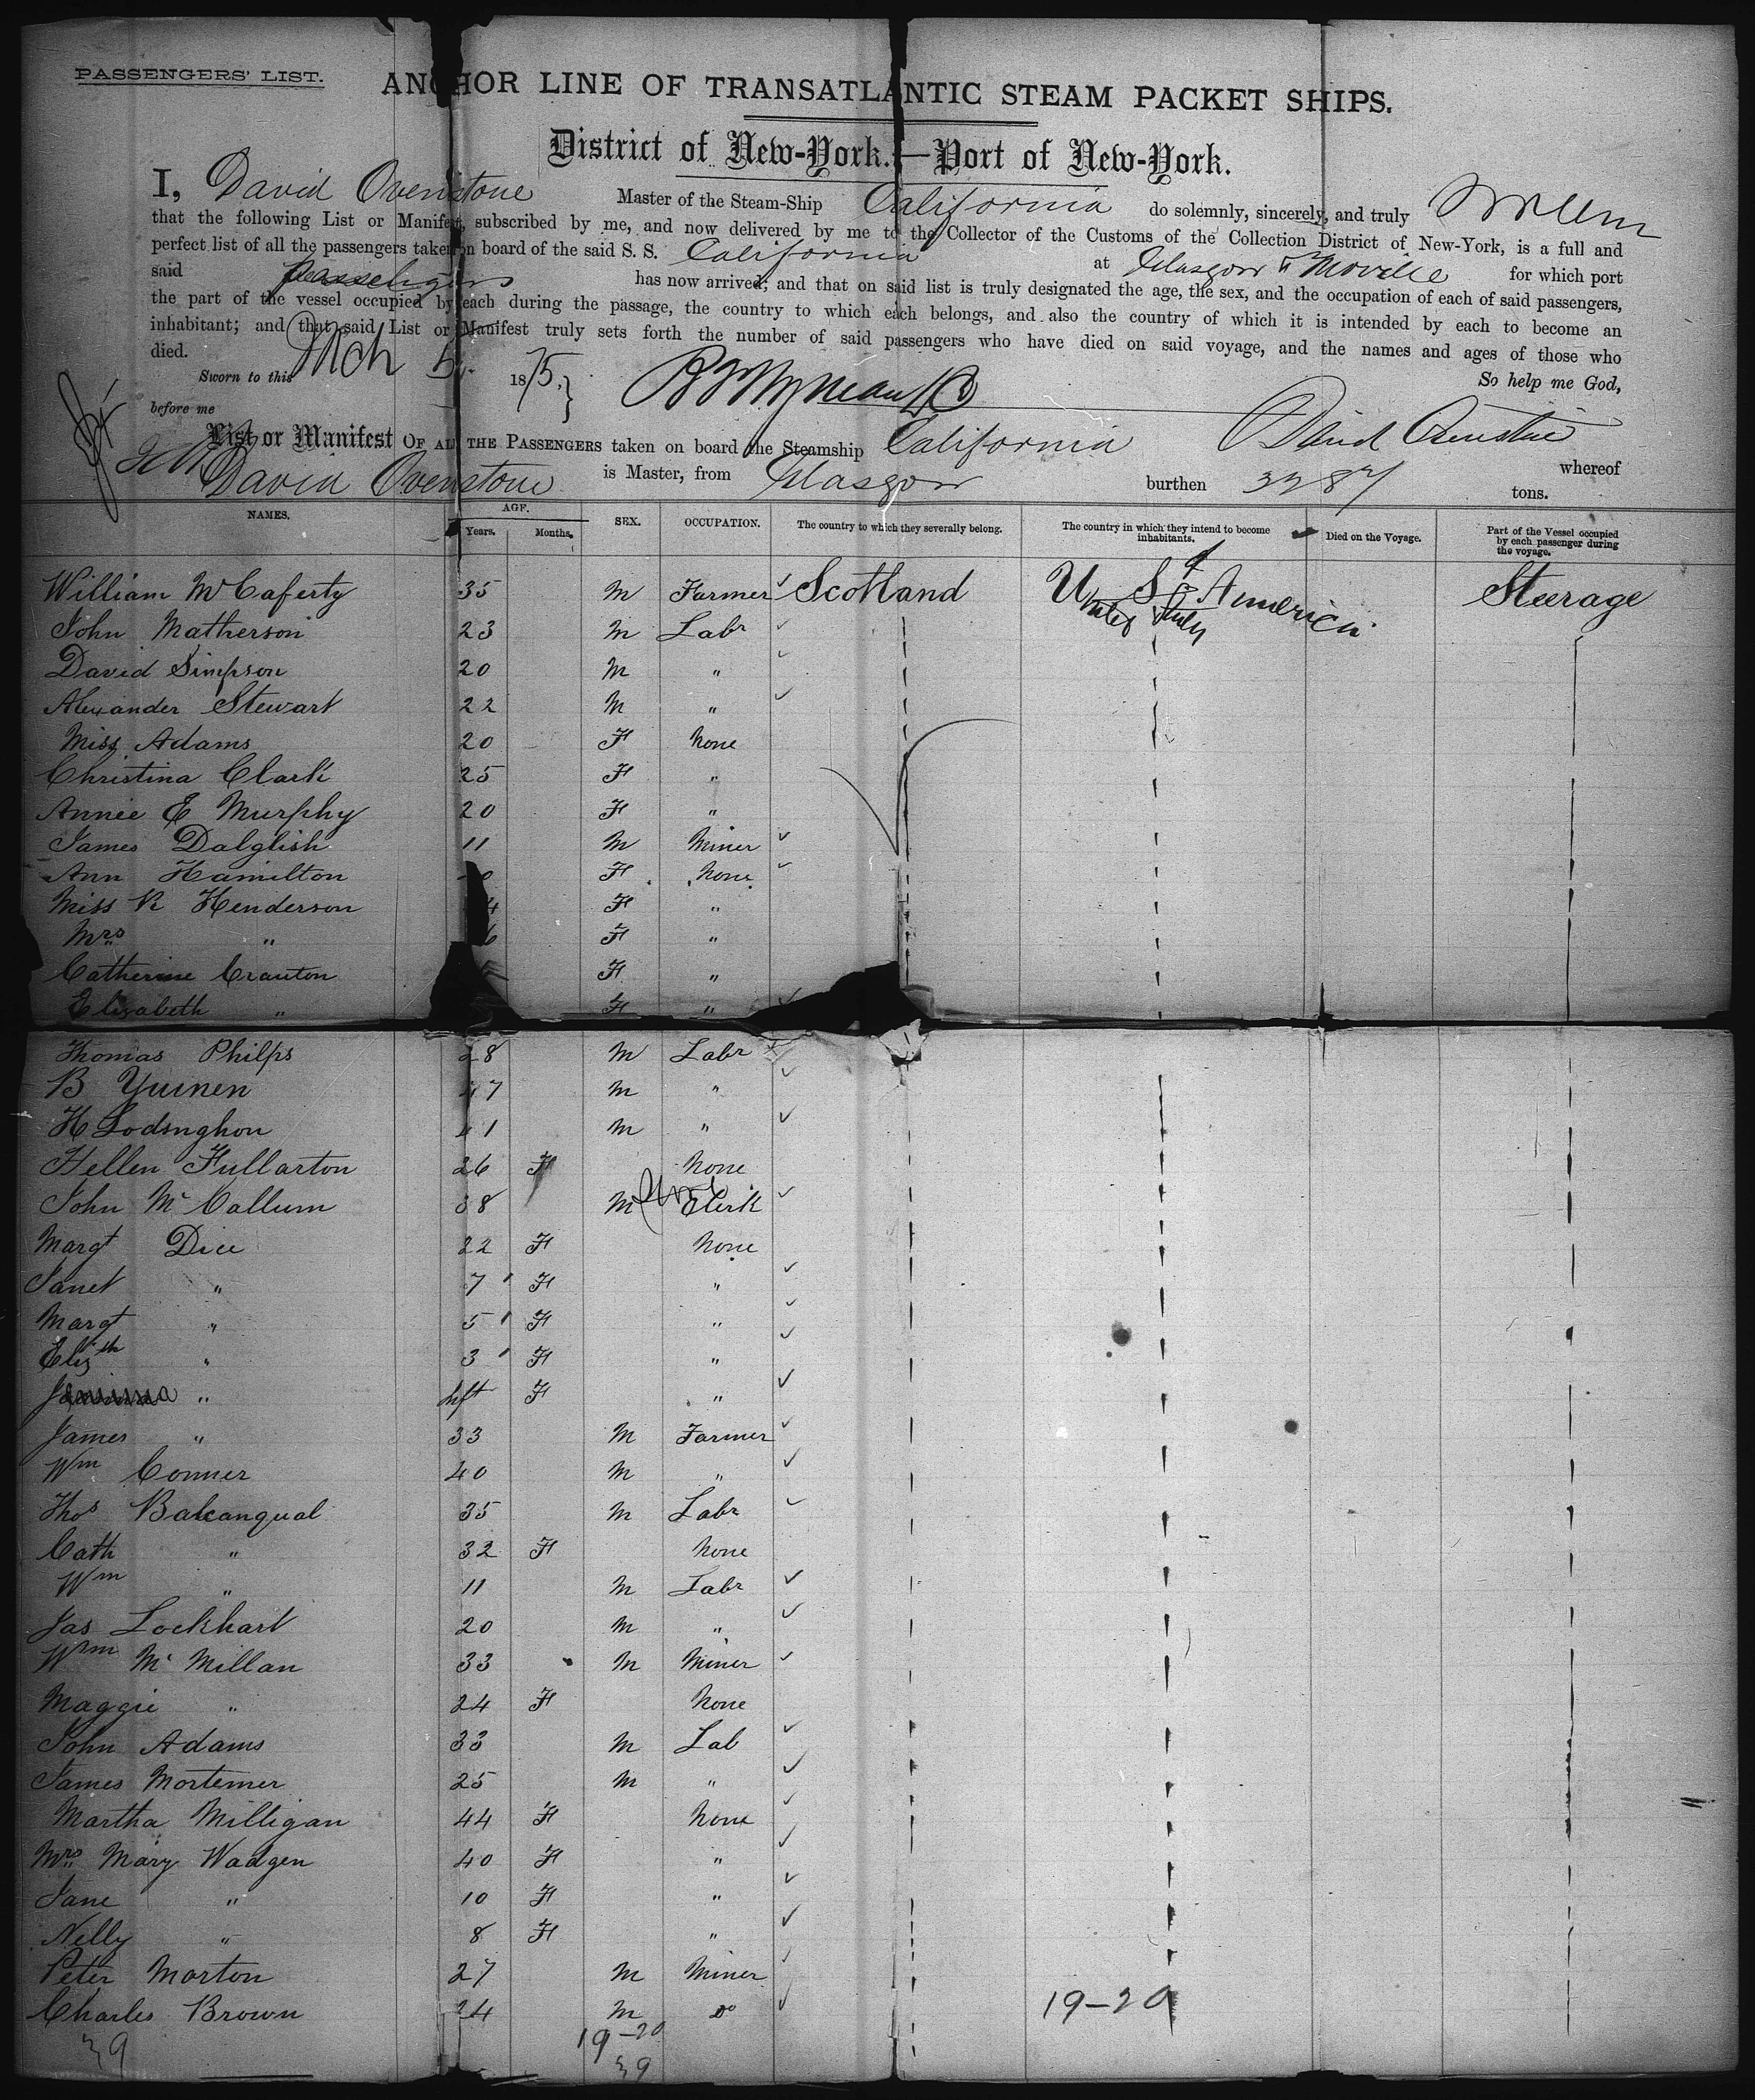 PASSENGERS' LIST.
ANCHOR LINE OF TRANSATLANTIC STEAM PACKET SHIPS.
District of New-York.—Port of New-York.
I, David Ovenstone Master of the Steam-Ship California do solemnly, sincerely, and truly
that the following List or Manifest, subscribed by me, and now delivered by me to the Collector of the Customs of the Collection District of New-York, is a full and
perfect list of all the passengers taken on board of the said S. S. California at Glasgow & Moville for which port
said passengers has now arrived; and that on said list is truly designated the age, the sex, and the occupation of each of said passengers,
the part of the vessel occupied by each during the passage, the country to which each belongs, and also the country of which it is intended by each to become an
inhabitant; and that said List or Manifest truly sets forth the number of said passengers who have died on said voyage, and the names and ages of those who
died.
So help me God,
Sworn to this Mch 5 1875.
before me
David Ovenstone
List or Manifest OF ALL THE PASSENGERS taken on board the Steamship California whereof
David Ovenstone is Master, from Glasgow burthen 3287 tons.
NAMES. AGE. Years. Months. SEX. OCCUPATION. The country to which they severally belong. The country in which they intend to become inhabitants. Died on the Voyage. Part of the Vessel occupied by each passenger during the voyage.
William McCaferty 35 M Farmer Scotland U S of America Steerage
John Matherson 23 M Labr
David Simpson 20 M "
Alexander Stewart 22 M "
Miss Adams 20 F None
Christina Clark 25 F "
Annie E Murphy 20 F "
James Dalglish 11 M Miner
Ann Hamilton F None
Miss R Henderson 4 F "
Mrs " 6 F "
Catherine Cranton F "
Elizabeth " F "
Thomas Philps 28 M Labr
B Yuinen 47 M "
H Lodsnghon 41 M "
Hellen Fullarton 26 F None
John McCallum 38 M Clerk
Margt Dice 22 F None
Janet " 7 F "
Margt " 5 F "
Elizth " 3 F "
Jemima " Inft F "
James " 33 M Farmer
Wm Conner 40 M "
Thos Balcanqual 35 M Labr
Cath " 32 F None
Wm " 11 M Labr
Jas Lockhart 20 M "
Wm McMillan 33 M Miner
Maggie " 24 F None
John Adams 33 M Lab
James Mortemer 25 M "
Martha Milligan 44 F None
Mrs Mary Wadgen 40 F "
Jane " 10 F "
Nelly " 8 F "
Peter Morton 27 M Miner
Charles Brown 24 M Do 19-20
39 19-20
39